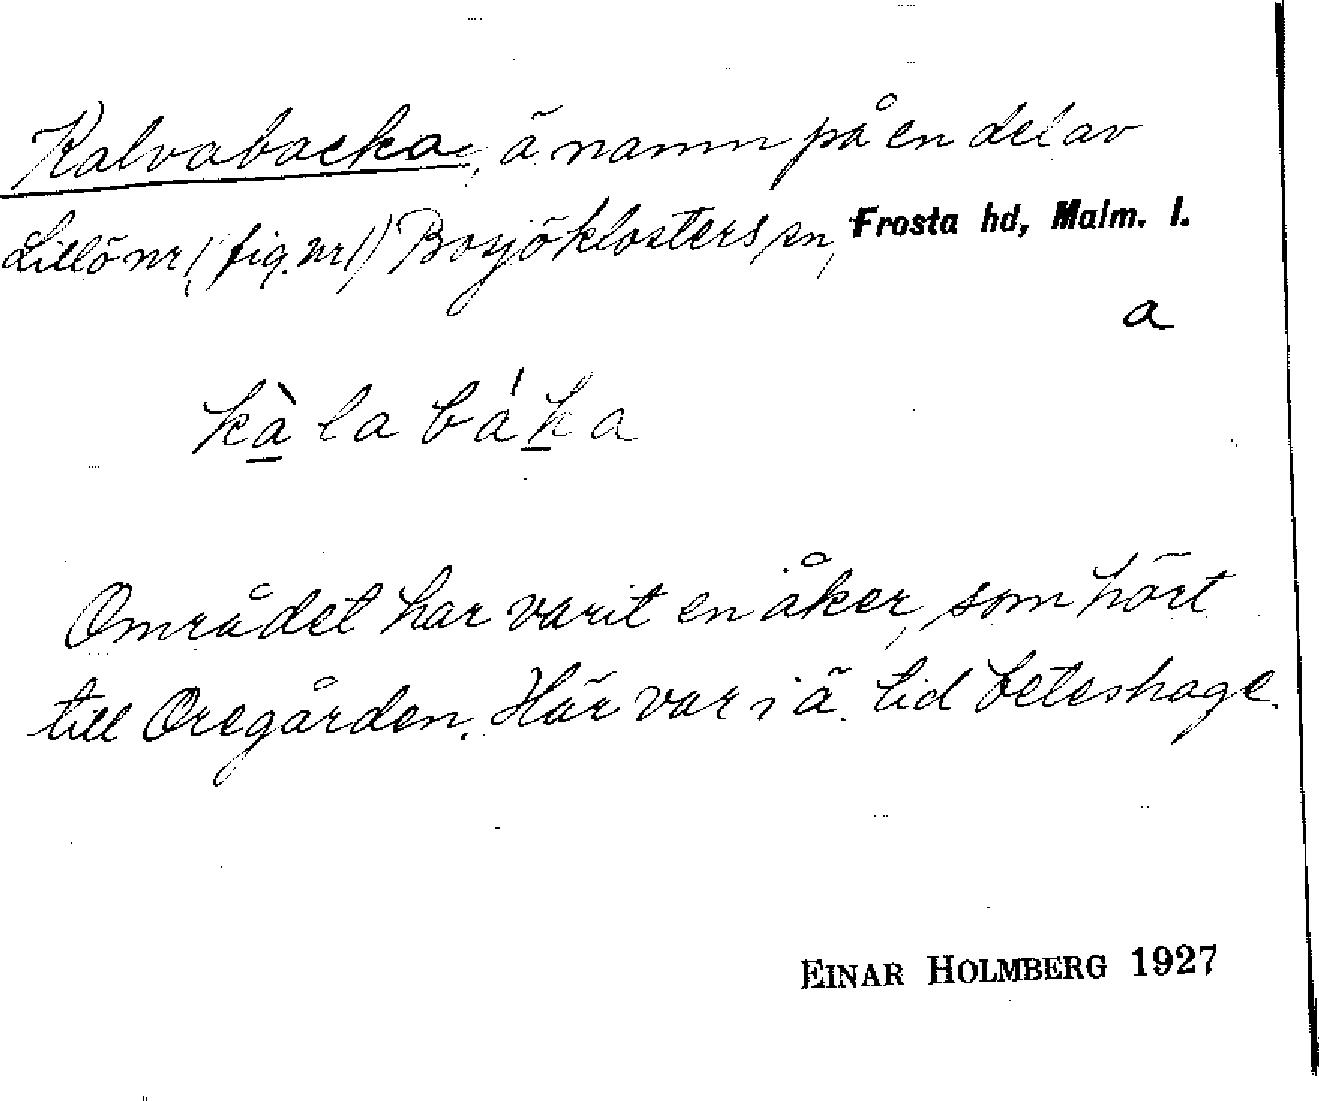 Kalvabacka, ä. namn på en del av
Lillö nr 1 (fig. nr 1) Bosjöklosters sn, Frosta hd, Malm. l.
a
kàla báka
Området har varit en åker, som hört
till Oregården. Här var i ä. tid beteshage.
EINAR HOLMBERG 1927